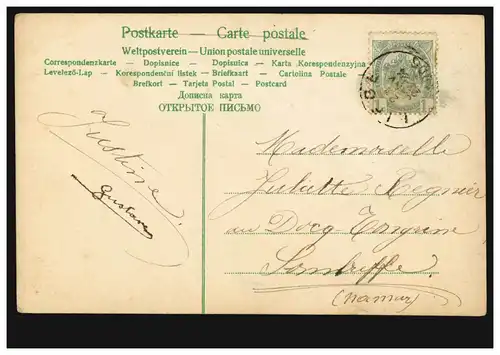 Postkarte — Carte postale
Weltpostverein – Union postale universelle
Correspondenzkarte – Dopisnice – Dopisnica – Karta Korespondenzyjna
Levelező-Lap – Korespondenční listek – Briefkaart – Cartolina Postale
Brefkort – Tarjeta Postal – Postcard
Дописна карта
ОТКРЫТОЕ ПИСЬМО
Justine
Gustave
Mademoiselle
Juliette Regnier
au
Sombreffe
(namur)